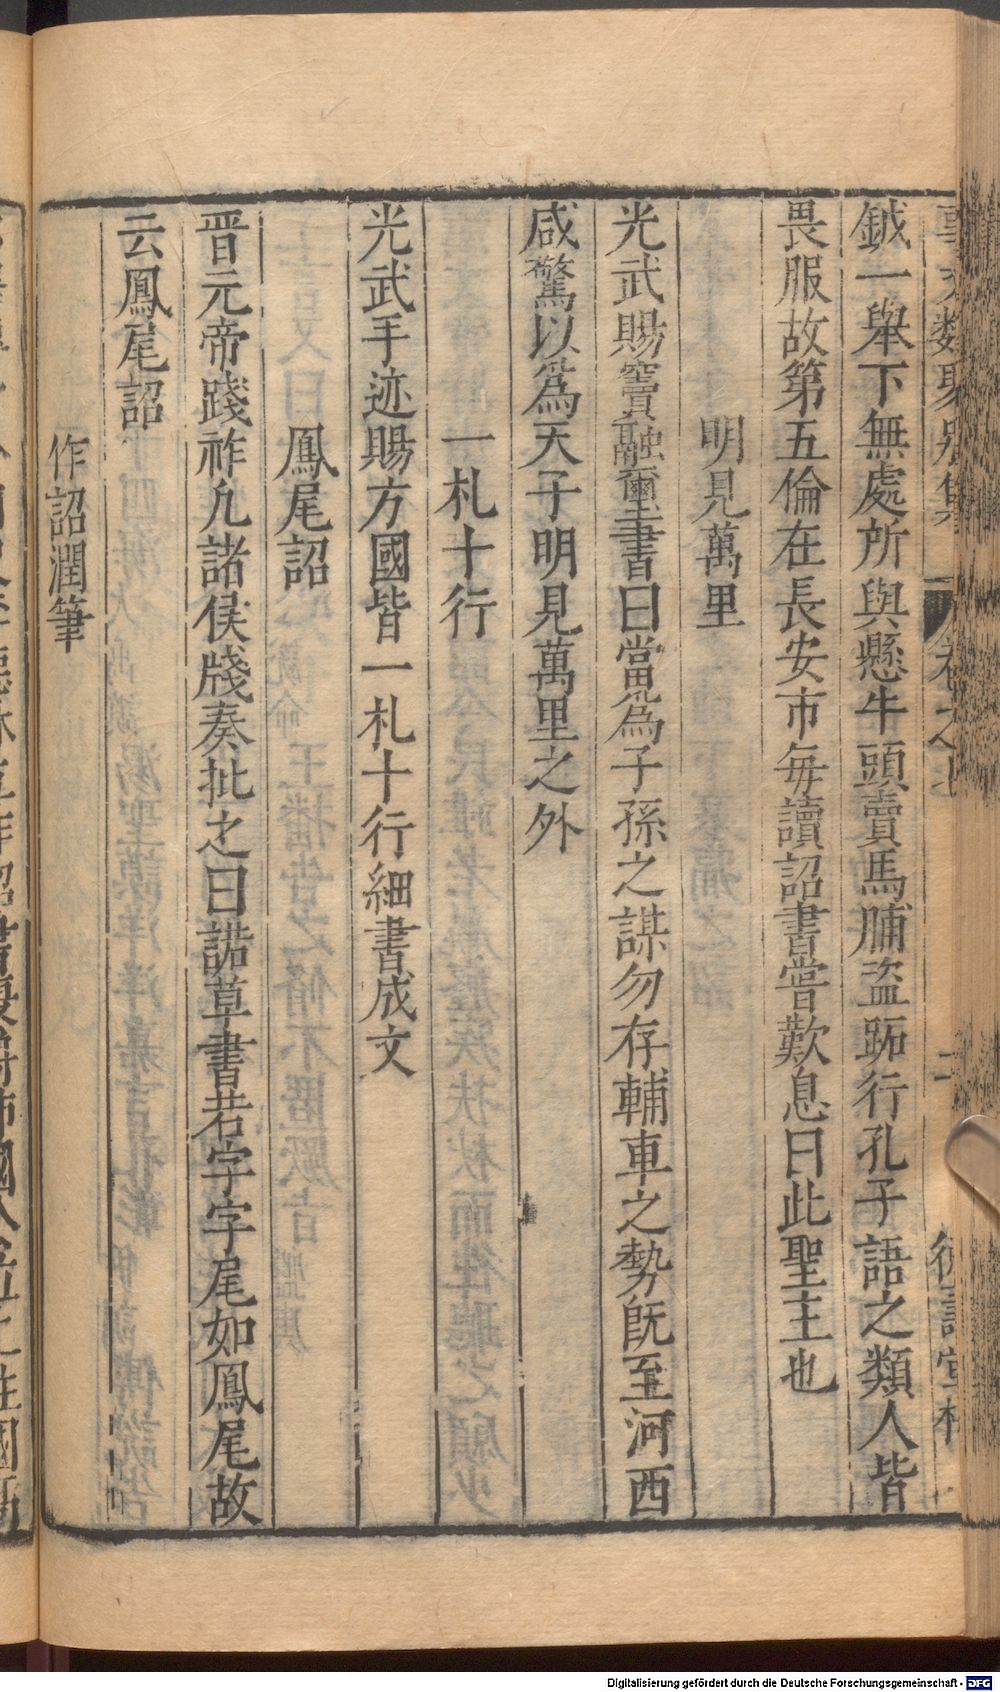 鉞一舉下無處所與懸牛頭賣馬脯盗跖行孔子語之類人皆
畏服故第五倫在長安市每讀詔書嘗歎息曰此聖主也
明見萬里
光武賜竇融璽書曰當爲子孫之謀勿存輔車之勢旣至河西
咸驚以爲天子明見萬里之外
一札十行
光武手迹賜方國皆一札十行細書成文
鳳尾詔
晋元帝踐祚凡諸侯牋奏批之曰諾草書若字字尾如鳳尾故
云鳳尾詔
作詔潤筆
Digitalisierung gefördert durch die Deutsche Forschungsgemeinschaft - DFG